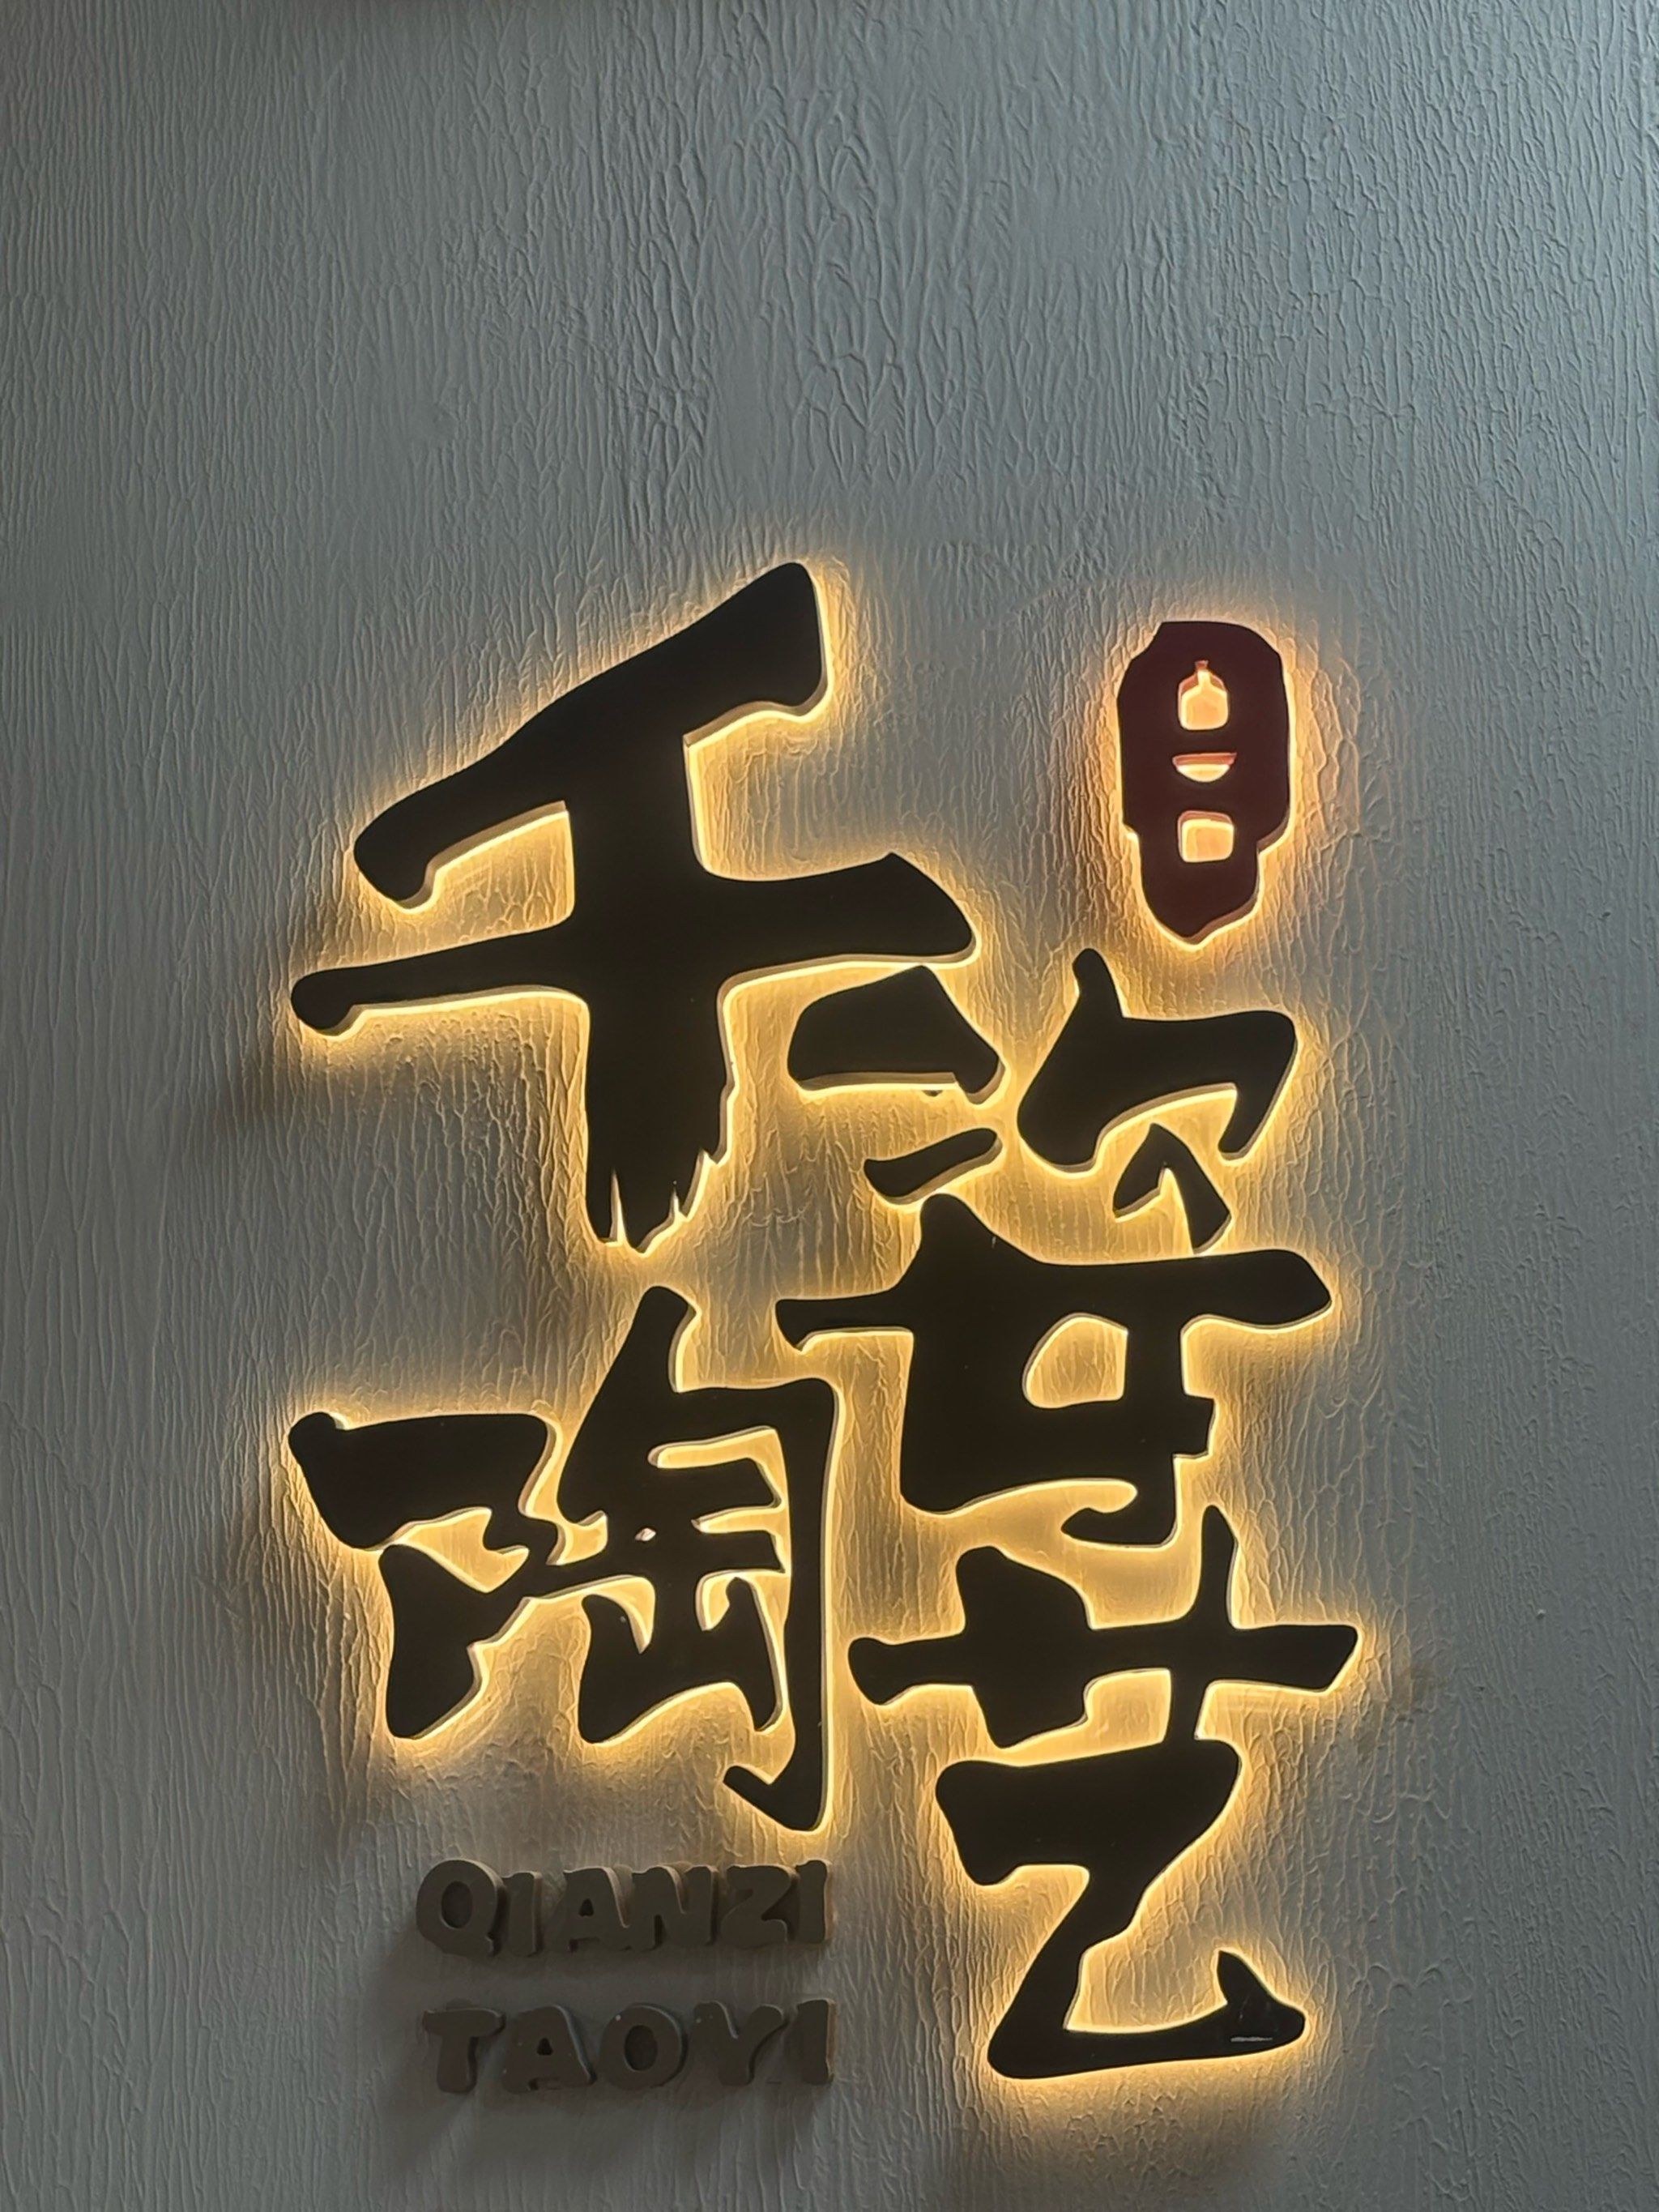 千姿
陶艺
QIANZI
TAOYI